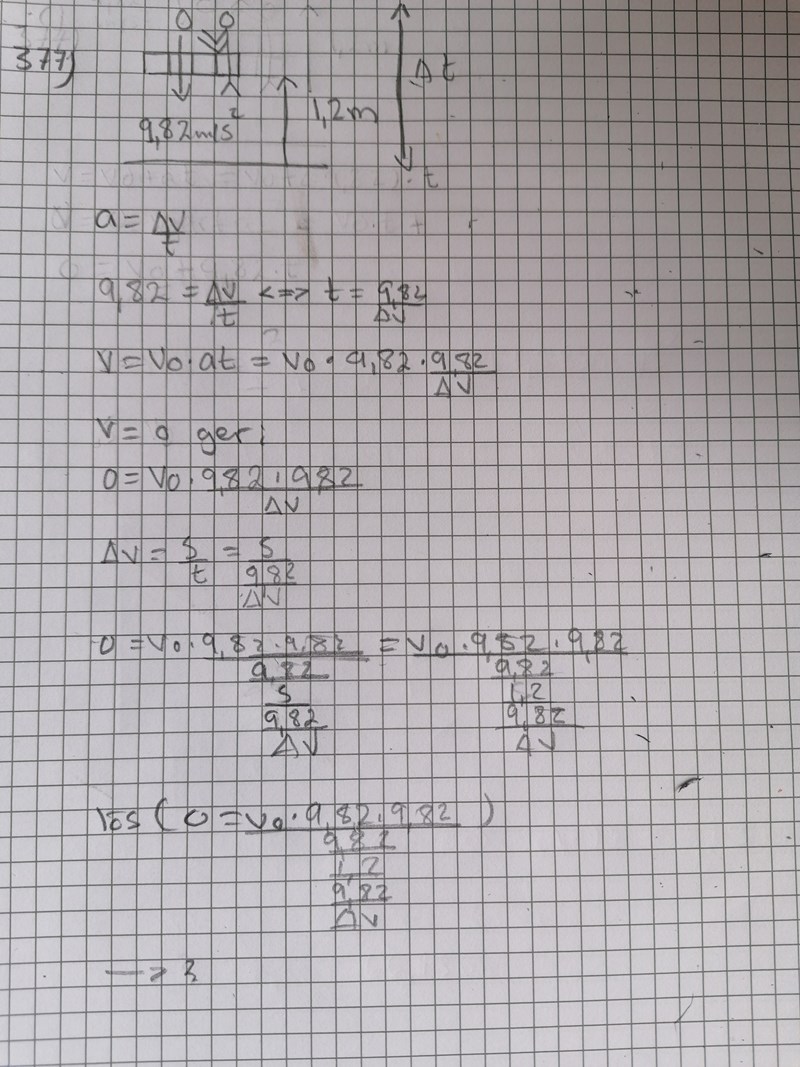 0 0
377)
Δt
1,2m
9,82m/s²
t
a = ΔV/t
9,82 = ΔV/t <=> t = 9,82/ΔV
V = V0 · at = V0 · 9,82 · 9,82/ΔV
V = 0 ger:
0 = V0 · 9,82 · 9,82/ΔV
ΔV = S/t = S/(9,82/ΔV)
0 = V0 · 9,82 · 9,82/9,82/S/9,82/ΔV = V0 · 9,82 · 9,82/9,82/1,2/9,82/ΔV
lös (0 = V0 · 9,82 · 9,82/9,82/1,2/9,82/ΔV)
—> 3